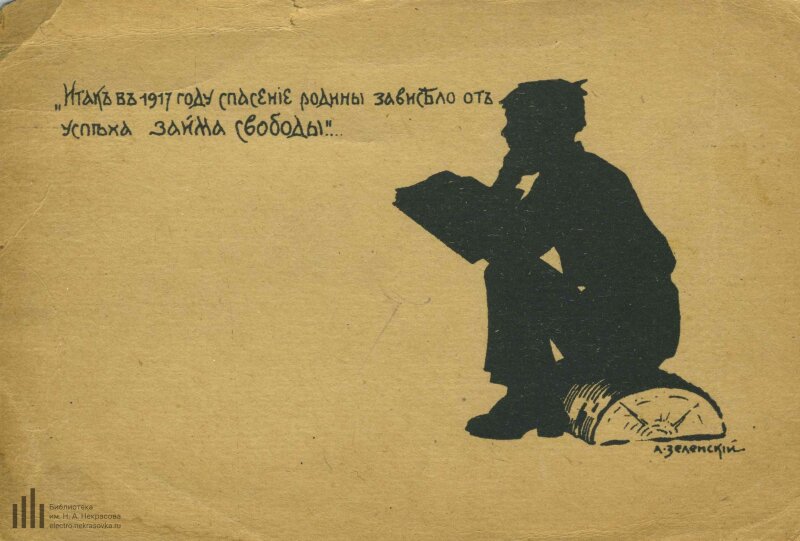 „Итакъ въ 1917 году спасенiе родины зависѣло отъ
успѣха займа свободы"....
А. Зеленскiй
Библиотека
им. Н. А. Некрасова
electro-nekrasovka.ru